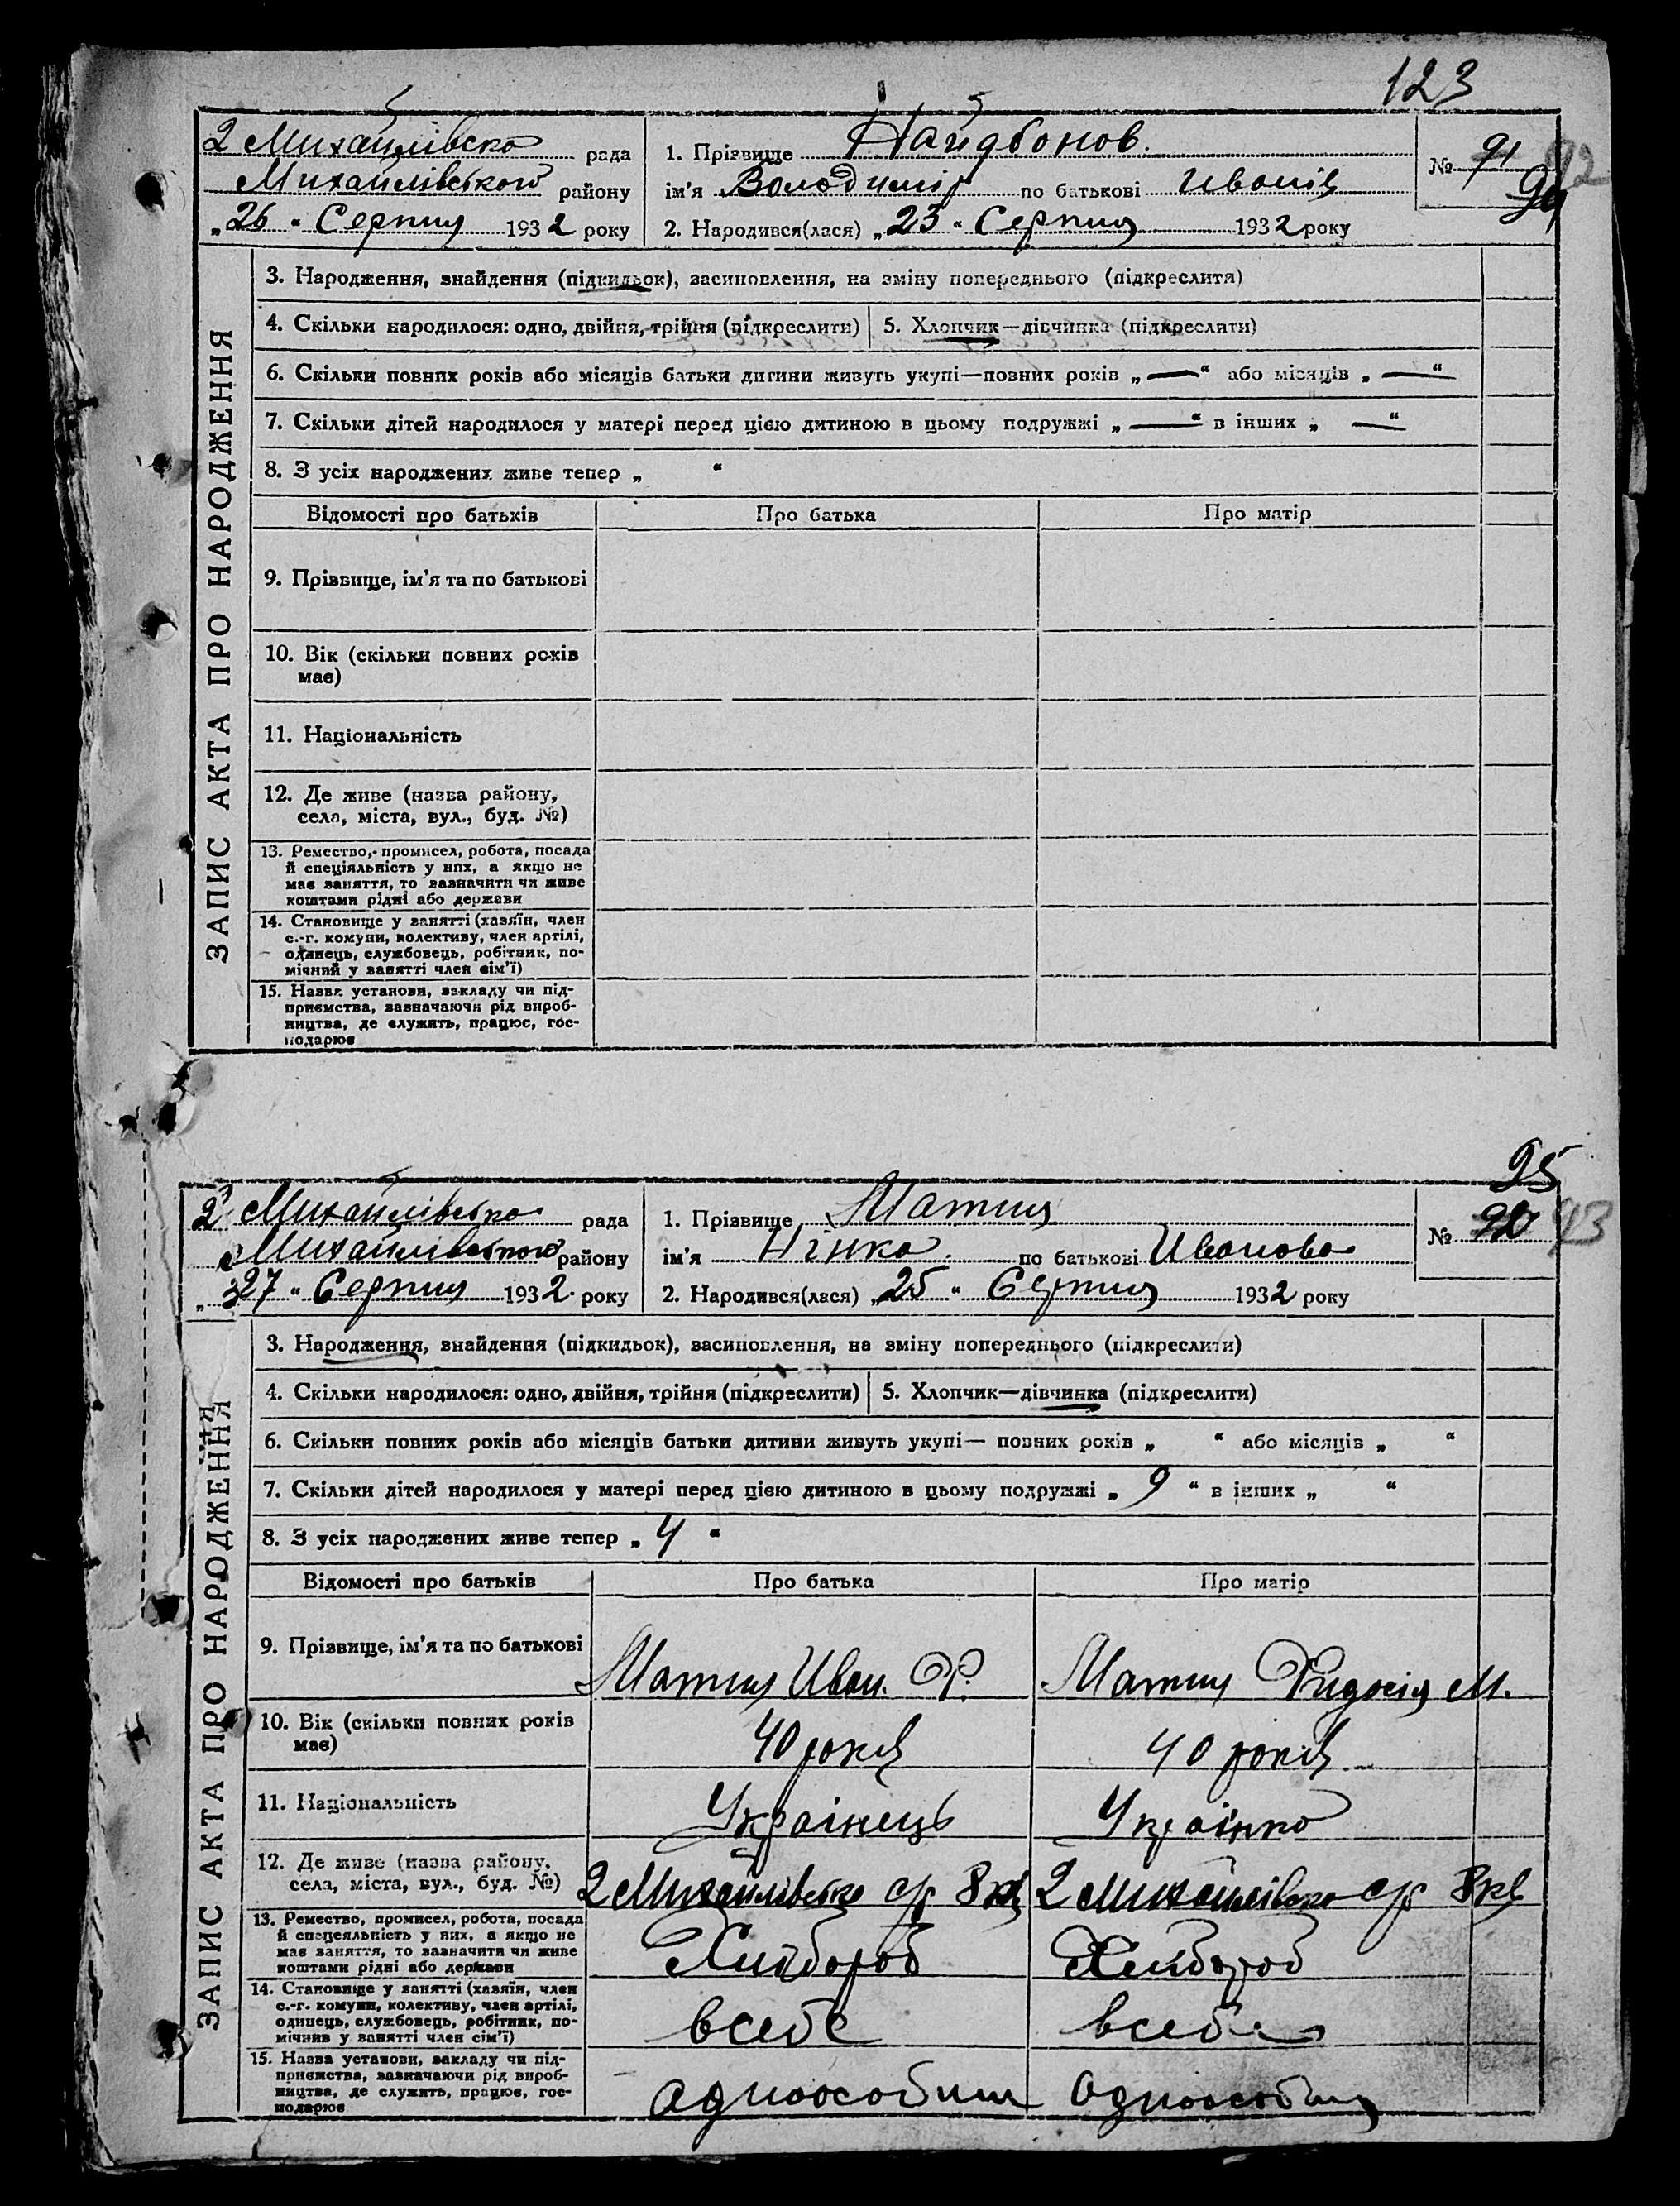 123
2 Михайлівско рада
Михайлівського району
„26“ Серпня 1932 року
1. Прізвище Найдбонов.
ім'я Володимір по батькові Иванів
2. Народився(лася) „23“ Серпня 1932 року
№ 91 92
94
ЗАПИС АКТА ПРО НАРОДЖЕННЯ
3. Народження, знайдення (підкидьок), засиновлення, на зміну попереднього (підкреслити)
4. Скільки народилося: одно, двійня, трійня (підкреслити) 5. Хлопчик—дівчинка (підкреслити)
6. Скільки повних років або місяців батьки дитини живуть укупі—повних років „—“ або місяців „—“
7. Скільки дітей народилося у матері перед цією дитиною в цьому подружжі „—“ в інших „—“
8. З усіх народжених живе тепер „ “
Відомості про батьків Про батька Про матір
9. Прізвище, ім'я та по батькові
10. Вік (скільки повних років
має)
11. Національність
12. Де живе (назва району,
села, міста, вул., буд. №)
13. Ремество, промисел, робота, посада
й спеціяльність у них, а якщо не
має заняття, то зазначити чи живе
коштами рідні або держави
14. Становище у занятті (хазяїн, член
с.-г. комуни, колективу, член артілі,
одинець, службовець, робітник, по-
мічний у занятті член сім'ї)
15. Назва установи, закладу чи під-
приємства, зазначаючи рід вироб-
ництва, де служить, працює, гос-
подарює
95
2 Михайлівсько рада
Михайлівського району
„27“ Серпня 1932 року
1. Прізвище Матня
ім'я Нінка по батькові Иванова
2. Народився(лася) „25“ Серпня 1932 року
№ 92 93
ЗАПИС АКТА ПРО НАРОДЖЕННЯ
3. Народження, знайдення (підкидьок), засиновлення, на зміну попереднього (підкреслити)
4. Скільки народилося: одно, двійня, трійня (підкреслити) 5. Хлопчик—дівчинка (підкреслити)
6. Скільки повних років або місяців батьки дитини живуть укупі— повних років „ “ або місяців „ “
7. Скільки дітей народилося у матері перед цією дитиною в цьому подружжі „ 9 “ в інших „ “
8. З усіх народжених живе тепер „ 4 “
Відомості про батьків Про батька Про матір
9. Прізвище, ім'я та по батькові Матня Иван. Ф. Матня Фидосія М.
10. Вік (скільки повних років
має) 40 років 40 років
11. Національність Українець Українко
12. Де живе (назва району,
села, міста, вул., буд. №) 2 Михайлівсько с/р 8 кв 2 Михайлівско с/р 8 кв
13. Ремество, промисел, робота, посада
й спецеяльність у них, а якщо не
має заняття, то зазначити чи живе
коштами рідні або держави Хлібороб Хлібороб
14. Становище у занятті (хазяїн, член
с.-г. комуни, колективу, член артілі,
одинець, службовець, робітник, по-
мічник у занятті член сім'ї) всебе всебе
15. Назва установи, закладу чи під-
приємства, зазначаючи рід вироб-
ництва, де служить, працює, гос-
подарює